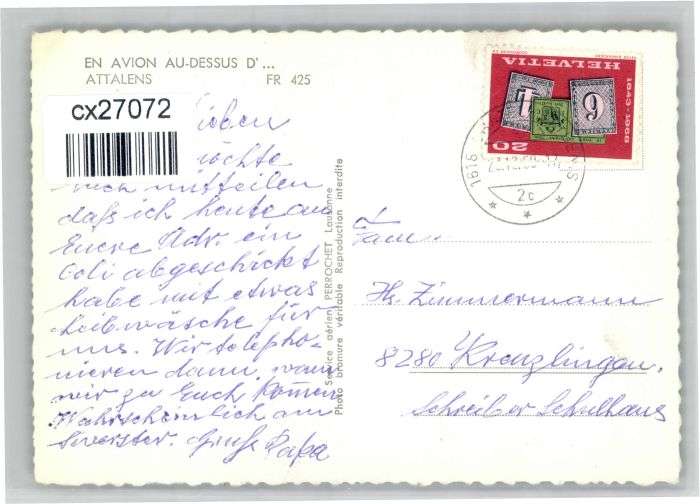 EN AVION AU-DESSUS D'...
ATTALENS FR 425
cx27072
ieben
öchte
mitteilen
daß ich heute an
Euere Adr. ein
Coli abgeschickt
habe mit etwas
Leibwäsche für
uns. Wir telepho-
nieren dann, wann
wir zu Euch kommen
Wahrscheinlich am
Sivester. Gruß Papa
Service aérien PERROCHET Lausanne
Photo bromure véritable Reproduction interdite
HELVETIA
1843-1968
20
4
6
1616
2c
Fam.
Hs. Zimmermann
8280 Kreuzlingen
Schreiber Schulhaus